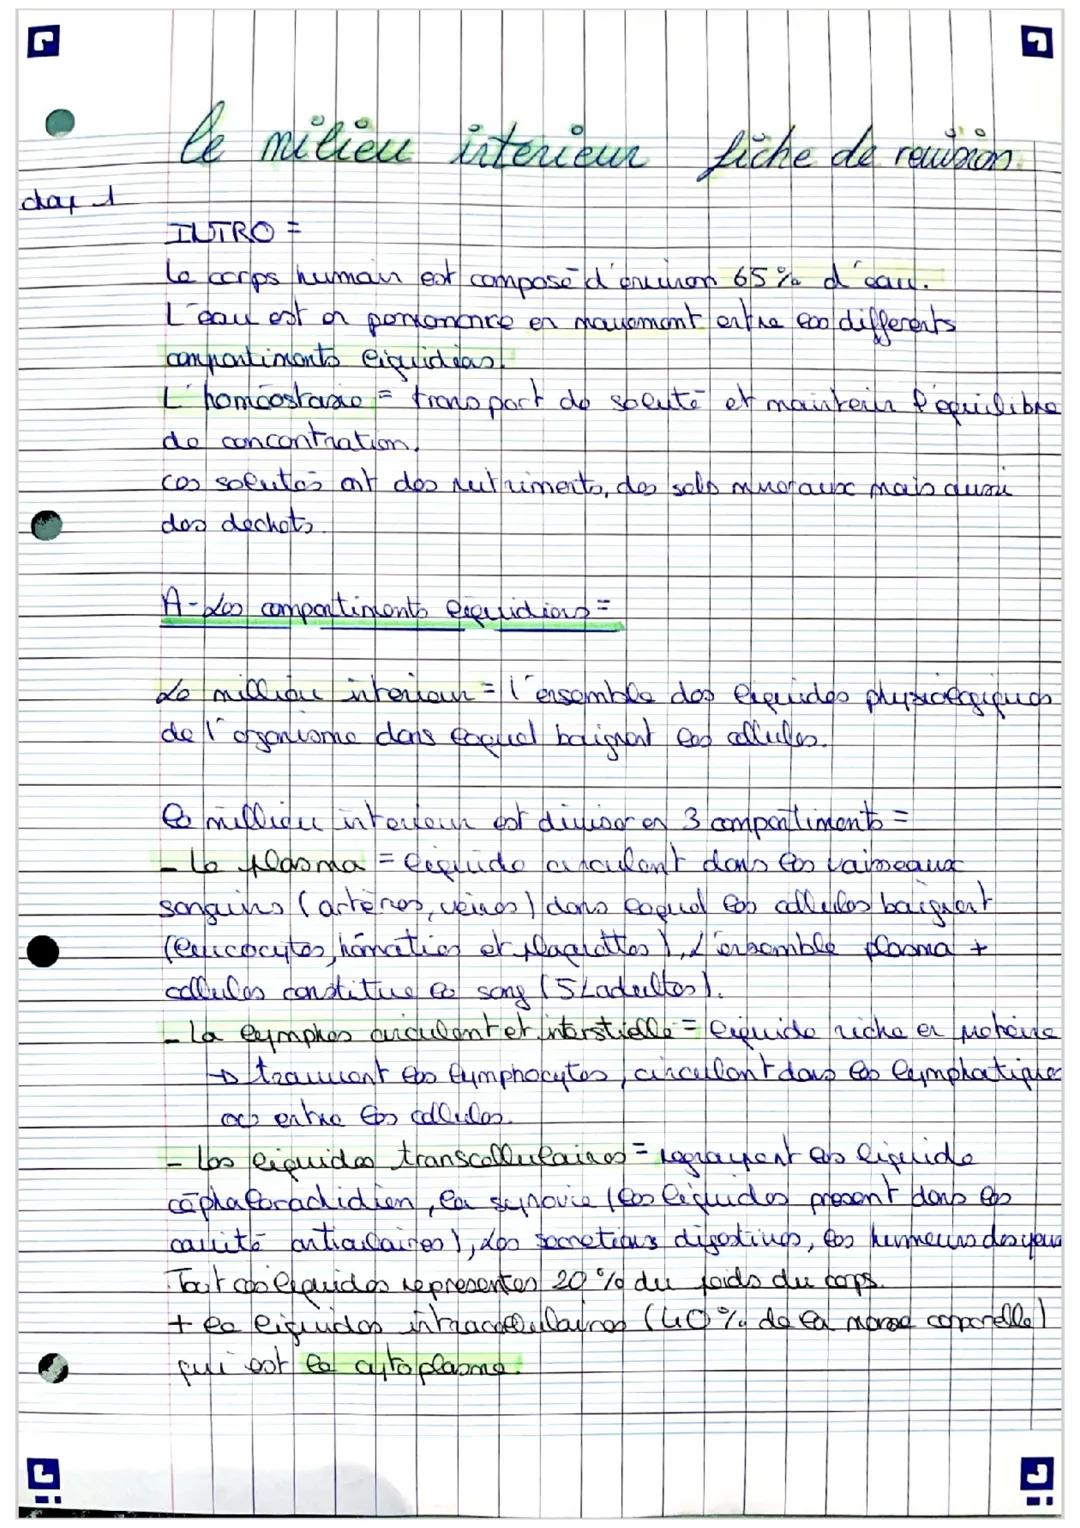 le milieu interieur fiche de revision
chap 1
INTRO =
Le corps humain est composé d'environ 65% d'eau.
L'eau est en permanence en mouvement entre les differents
compartiments liquidiens.
L'homéostasie = transport de soluté et maintenir l'équilibre
de concentration.
ces solutés ont des nutriments, des sels mineraux mais aussi
des dechets.
A-Les compartiments liquidiens =
Le millieu interieur = l'ensemble des liquides physiologiques
de l'organisme dans lequel baignent les cellules.
le millieu interieur est diviser en 3 compartiments =
- Le plasma = liquide circulant dans les vaisseaux
sanguins (artères, veines) dans lequel les cellules baignent
(leucocytes, hématies et plaquettes), L'ensemble plasma +
cellules constitue le sang (5L adultes).
- La lymphes circulant et interstielle = liquide riche en proteine
→ traversent les lymphocytes, circulent dans les lymphatiques
ou entre les cellules.
- Les liquides transcellulaires = regroupent les liquide
céphaloradidien, la synovie (les liquides present dans les
cavité articulaires), les secretions digestives, les humeurs des yeux
Tout ces liquides representes 20% du poids du corps.
+ le liquides intracellulaires (40% de la masse corporelle)
qui est le cytoplasme.